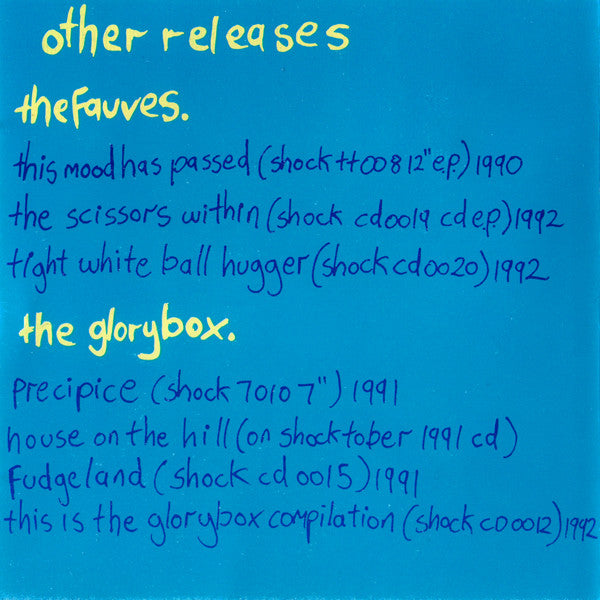 other releases
the fauves.
this mood has passed (shock tt008 12" e.p.) 1990
the scissors within (shock cd0019 cd e.p.) 1992
tight white ball hugger (shock cd0020) 1992
the glorybox.
precipice (shock 7010 7") 1991
house on the hill (on shocktober 1991 cd)
fudgeland (shock cd 0015) 1991
this is the glorybox compilation (shock CD0012) 1992